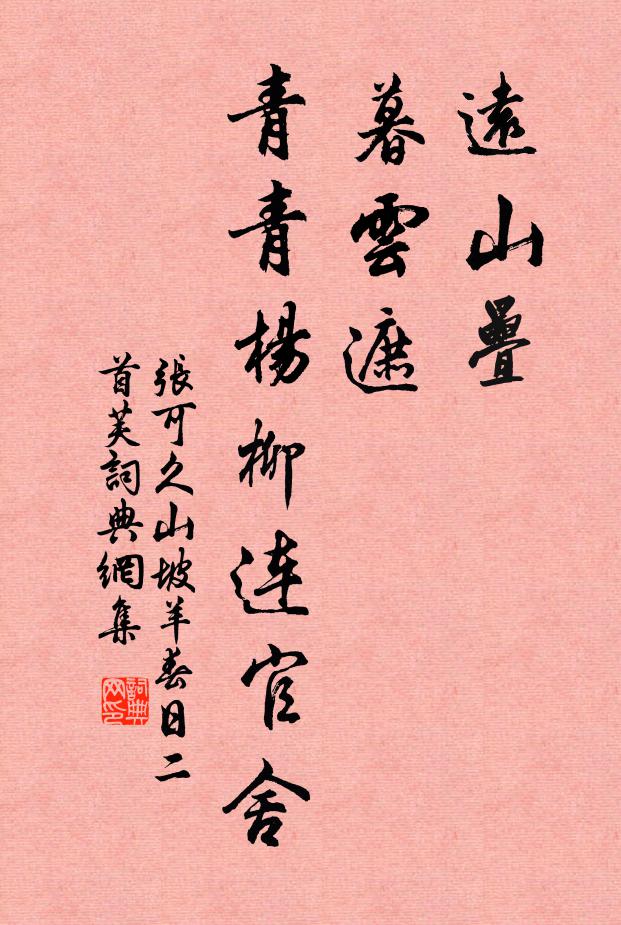 遠山疊
暮雲遮
青青楊柳連官舍
張可久山坡羊春日二
首芙詞典網集
詞典网印